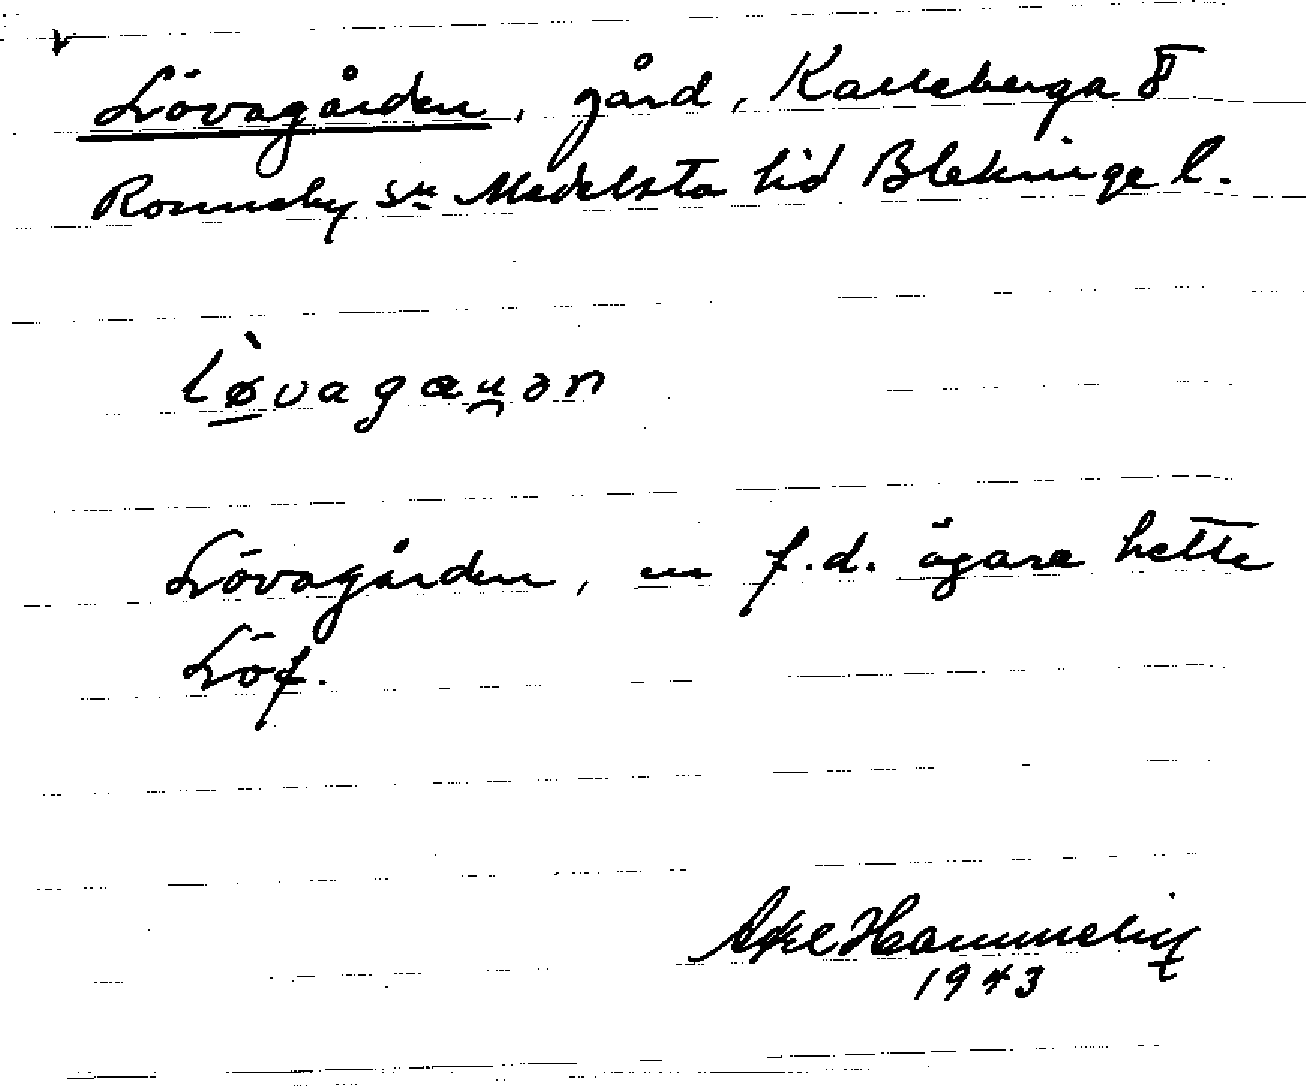 Lövagården, gård, Kalleberga 8
Ronneby sn Medelsta hd Blekinge l.
lø̀vagæu̯ən
Lövagården, en f.d. ägare hette
Löf.
Axel
1943